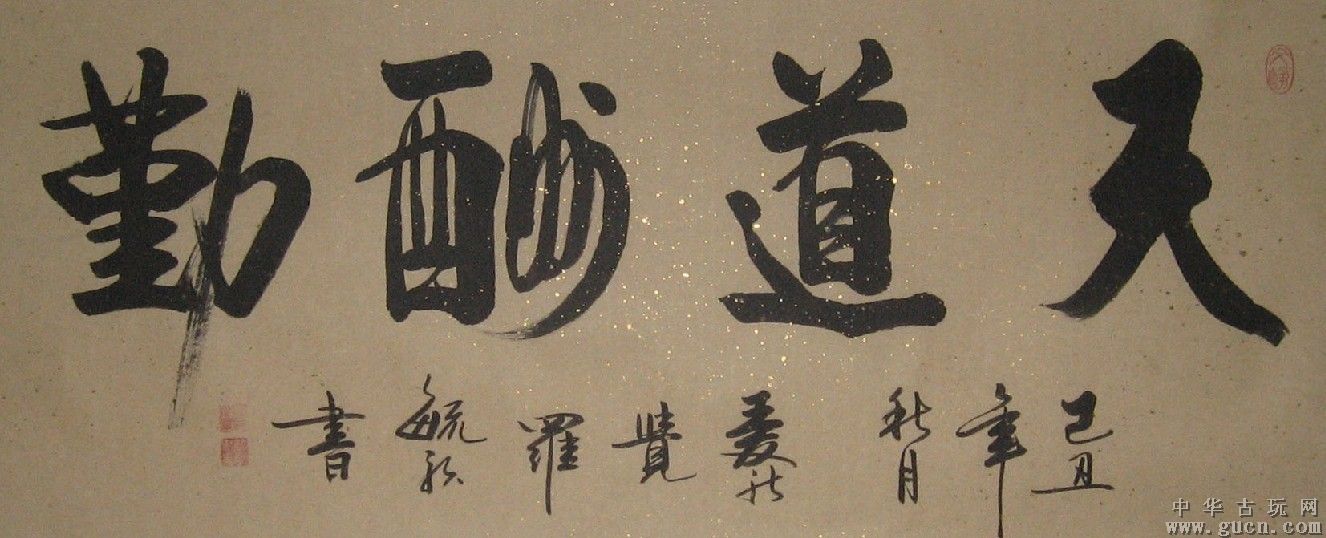 天道酬勤
己丑年秋月愛新覺羅毓㠭書
中华古玩网
www.gucn.com